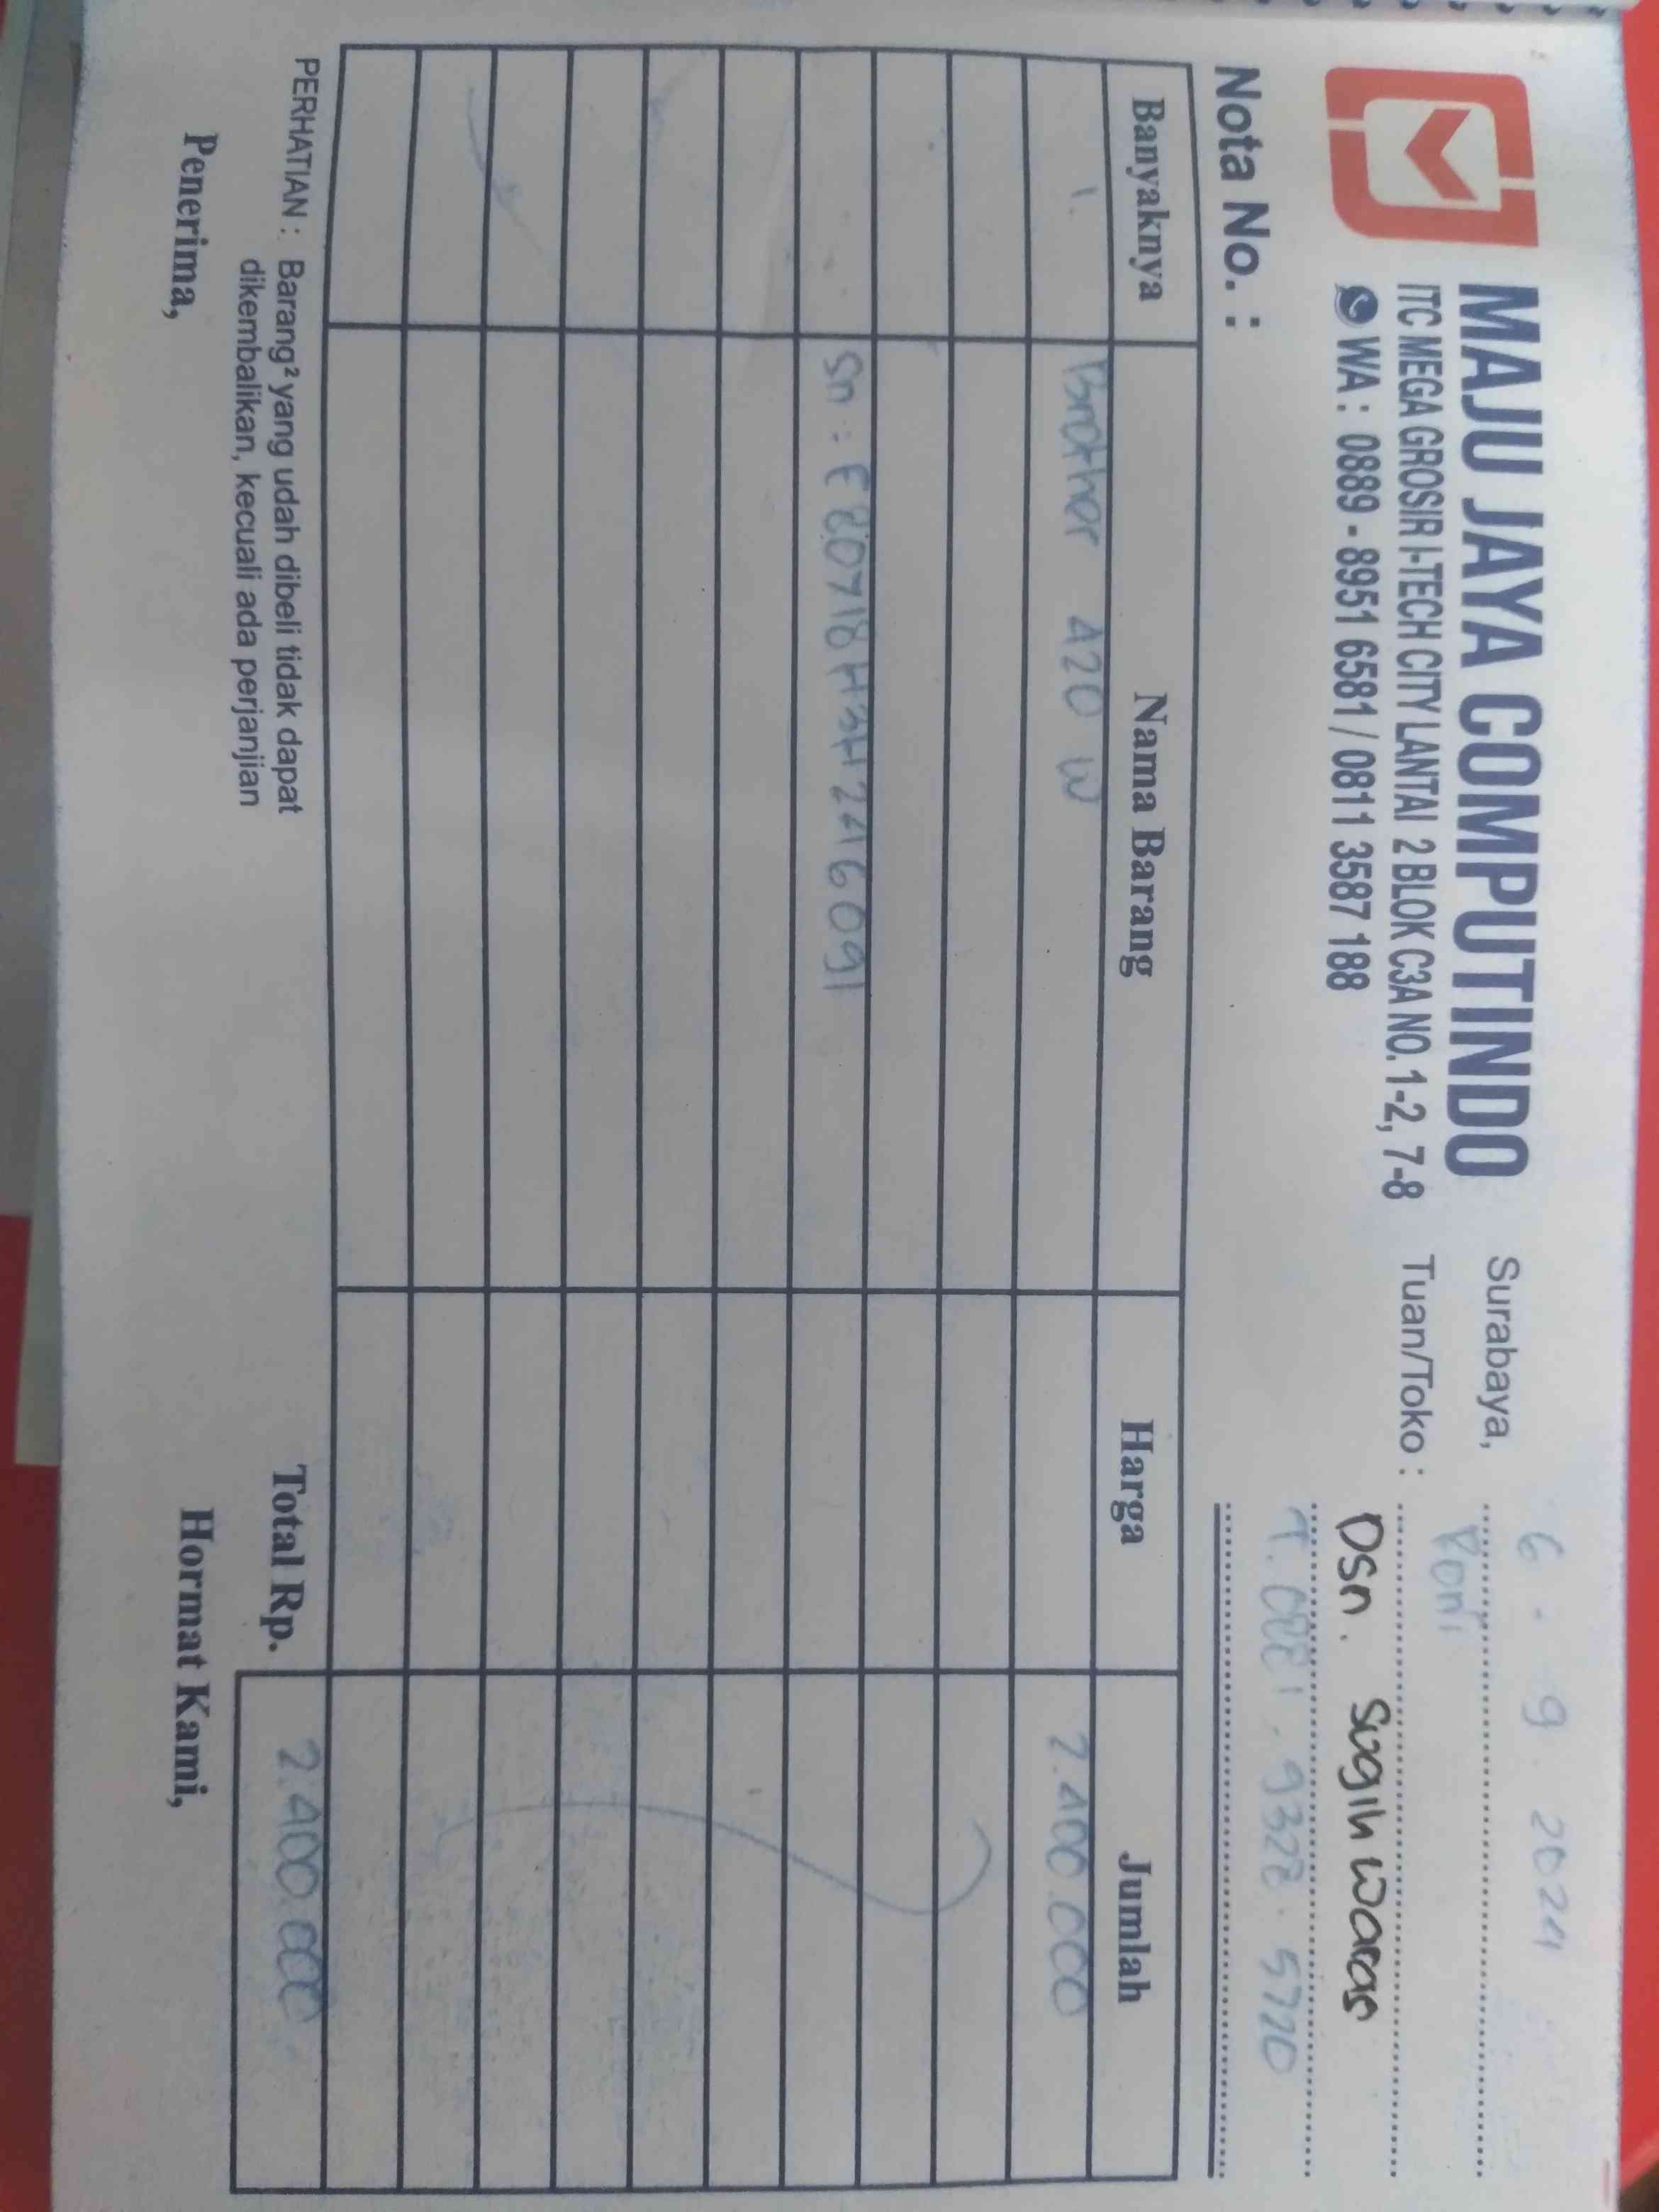 MAJU JAYA COMPUTINDO
ITC MEGA GROSIR I-TECH CITY LANTAI 2 BLOK C3A NO. 1-2, 7-8
WA : 0889 - 8951 6581 / 0811 3587 188
Surabaya, 6 - 9 - 2024
Tuan/Toko : Roni
Dsn. Sugihwaras
T. 0881 . 9328 . 5720
Nota No. :
Banyaknya Nama Barang Harga Jumlah
1. Brother 420 W 2.400.000
Sn : E80718H3H246091
PERHATIAN : Barang² yang udah dibeli tidak dapat
dikembalikan, kecuali ada perjanjian
Total Rp. 2.400.000
Penerima, Hormat Kami,